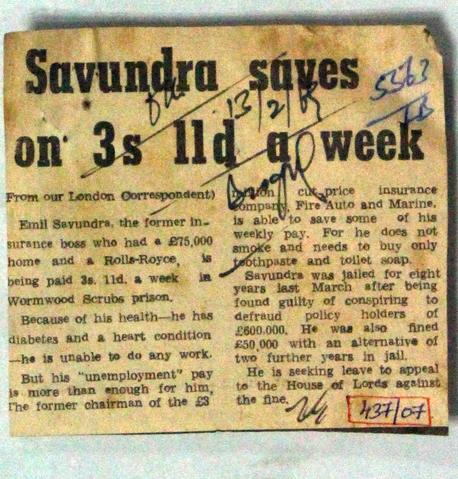 Savundra saves
on 3s 11d a week
13/2/69
5363
From our London Correspondent)
Emil Savundra, the former in-
surance boss who had a £75,000
home and a Rolls-Royce, is
being paid 3s. 11d. a week in
Wormwood Scrubs prison.
Because of his health—he has
diabetes and a heart condition
—he is unable to do any work.
But his "unemployment" pay
is more than enough for him,
The former chairman of the £3
million cut-price insurance
company, Fire Auto and Marine,
is able to save some of his
weekly pay. For he does not
smoke and needs to buy only
toothpaste and toilet soap.
Savundra was jailed for eight
years last March after being
found guilty of conspiring to
defraud policy holders of
£600.000. He was also fined
£50,000 with an alternative of
two further years in jail.
He is seeking leave to appeal
to the House of Lords against
the fine.
437/07